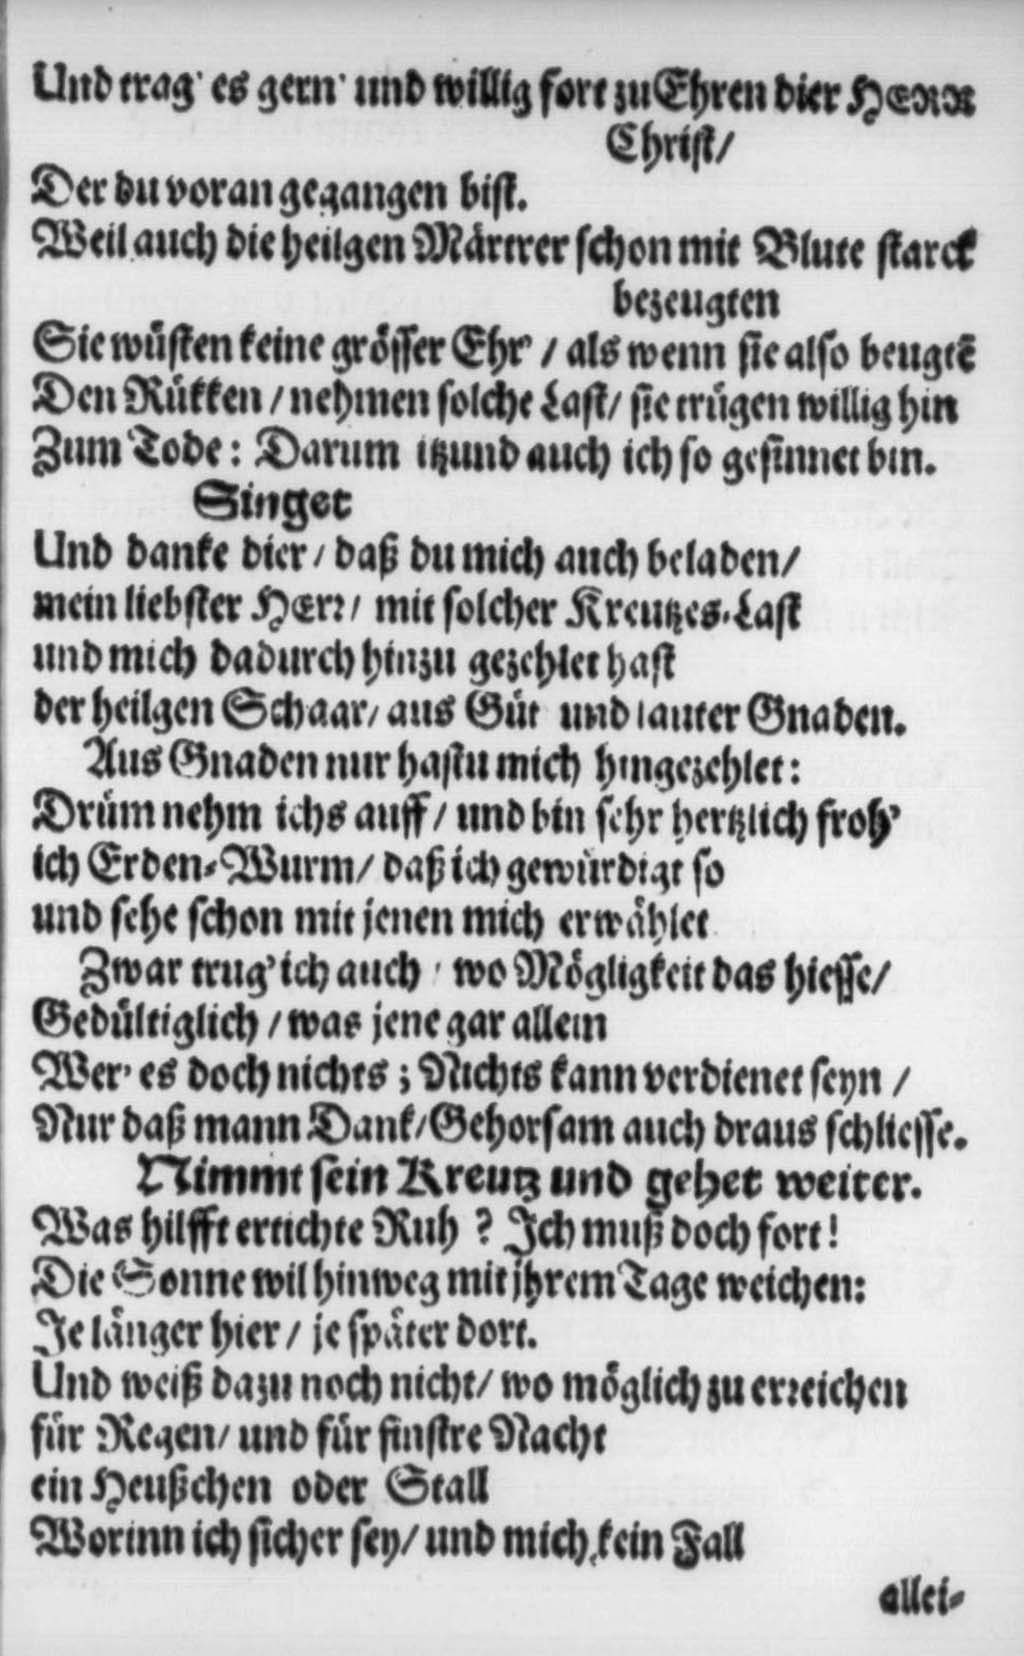 Und trag' es gern' und willig fort zu Ehren dier HERR
Christ/
Der du voran gegangen bist.
Weil auch die heilgen Märtrer schon mit Blute starck
bezeugten
Sie wüsten keine grösser Ehr' / als wenn sie also beugtē
Den Rükken / nehmen solche Last/ sie trügen willig hin
Zum Tode: Darum itzund auch ich so gesinnet bin.
Singet
Und danke dier / daß du mich auch beladen/
mein liebster HErr/ mit solcher Kreutzes-Last
und mich dadurch hinzu gezehlet hast
der heilgen Schaar/ aus Güt und lauter Gnaden.
Aus Gnaden nur hastu mich hingezehlet:
Drüm nehm ichs auff / und bin sehr hertzlich froh'
ich Erden-Wurm/ daß ich gewürdigt so
und sehe schon mit jenen mich erwählet
Zwar trug' ich auch / wo Mögligkeit das hiesse/
Gedültiglich / was jene gar allein
Wer' es doch nichts; Nichts kann verdienet seyn /
Nur daß mann Dank/ Gehorsam auch draus schliesse.
Nimmt sein Kreutz und gehet weiter.
Was hilfft ertichte Ruh? Ich muß doch fort!
Die Sonne wil hinweg mit jhrem Tage weichen:
Je länger hier / je später dort.
Und weiß dazu noch nicht/ wo möglich zu erreichen
für Regen/ und für finstre Nacht
ein Heußchen oder Stall
Worinn ich sicher sey/ und mich kein Fall
allei-